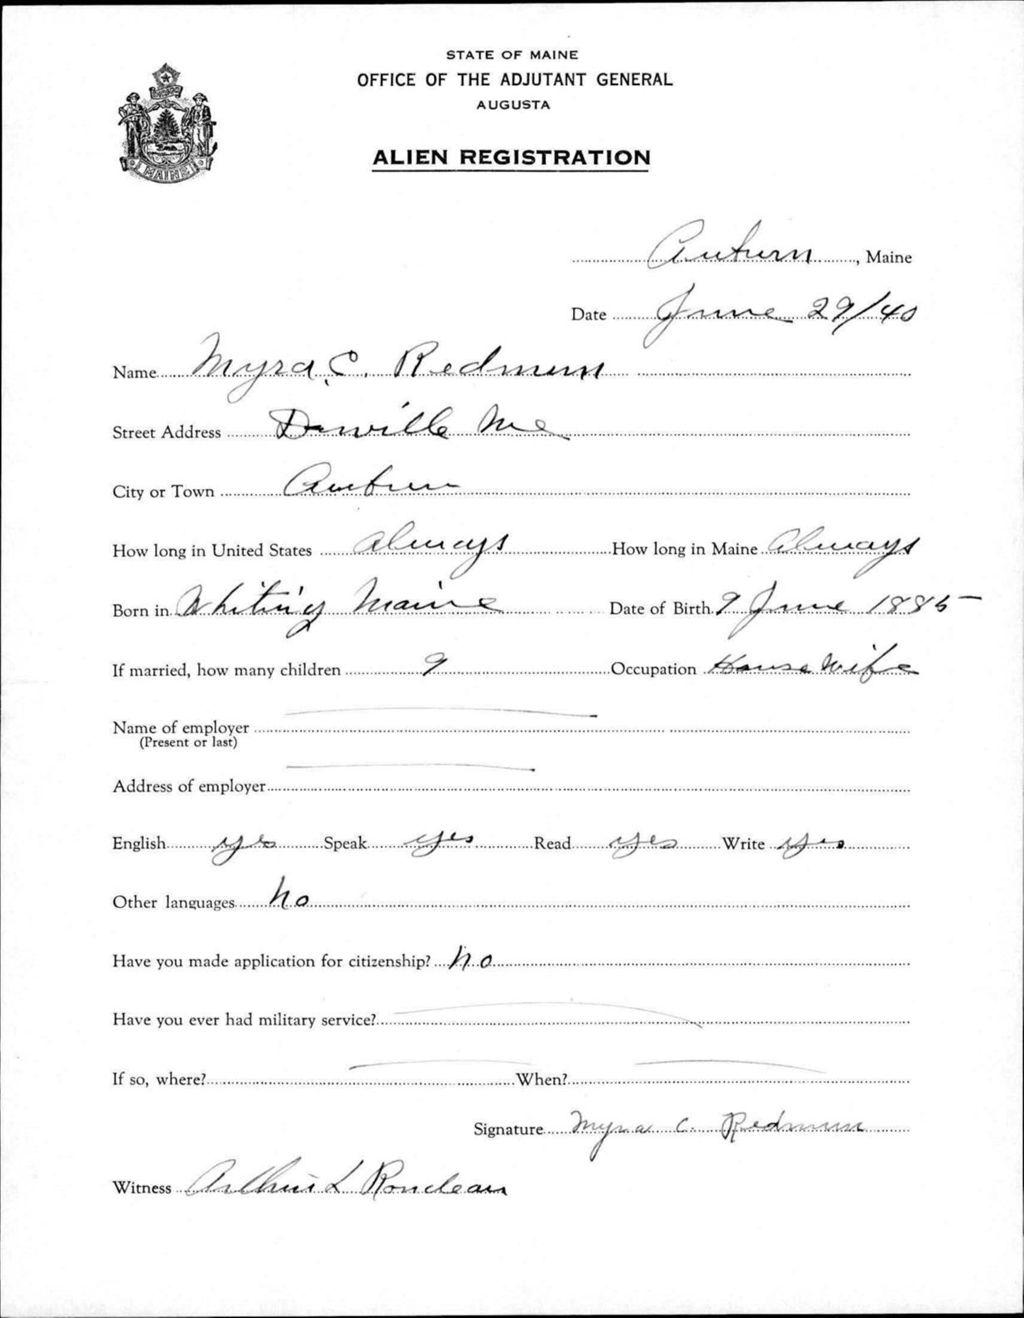 STATE OF MAINE
OFFICE OF THE ADJUTANT GENERAL
AUGUSTA
ALIEN REGISTRATION
MAINE
Auburn, Maine
Date June 29/40
Name Myra C. Redmun
Street Address Danville Me
City or Town Auburn
How long in United States Always How long in Maine Always
Born in Whiting Maine Date of Birth 9 June 1885
If married, how many children 9 Occupation House Wife
Name of employer
(Present or last)
Address of employer
English yes Speak yes Read yes Write yes
Other languages No
Have you made application for citizenship? No
Have you ever had military service?
If so, where? When?
Signature Myra C. Redmun
Witness Arthur L Rondeau